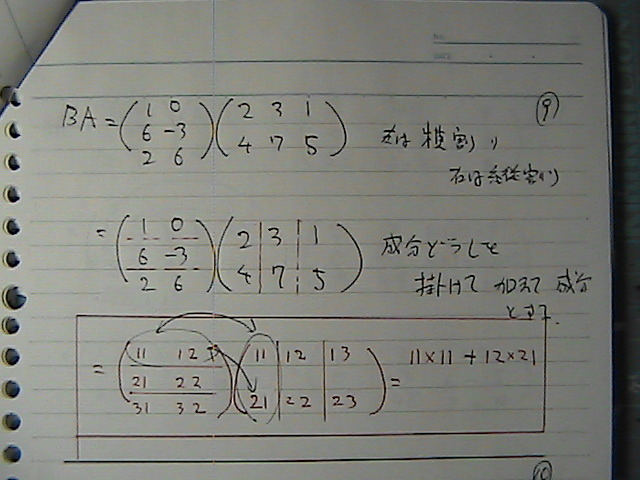 No.
DATE
⑨
BA = (1 0 / 6 -3 / 2 6)(2 3 1 / 4 7 5) 左は横割り
右は縦割り
= (1 0 / 6 -3 / 2 6)(2 3 1 / 4 7 5) 成分どうしを
掛けて 加えて 成分
とする.
= (11 12 / 21 22 / 31 32)(11 12 13 / 21 22 23) = 11×11 + 12×21
⑩